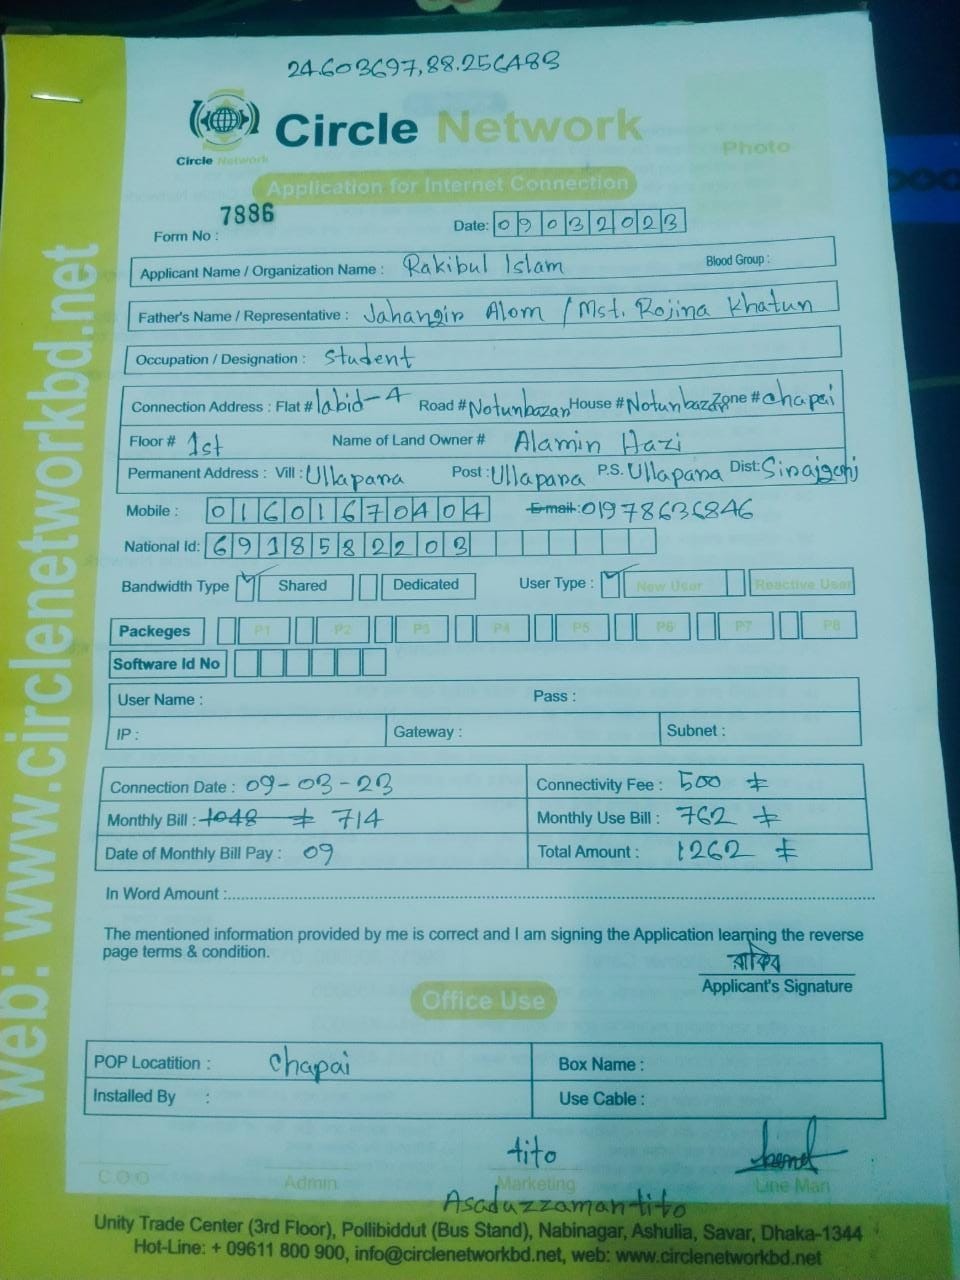 24.603697,88.256483
Circle Network
Circle Network
Photo
Application for Internet Connection
Form No : 7886
Date: 09032023
Applicant Name / Organization Name : Rakibul Islam Blood Group :
Father's Name / Representative : Jahangir Alom / Mst. Rojina Khatun
Occupation / Designation : Student
Connection Address : Flat # labid-4 Road # Notunbazar House # Notunbazar Zone # Chapai
Floor# 1st Name of Land Owner # Alamin Hazi
Permanent Address : Vill : Ullapara Post : Ullapara P.S. Ullapara Dist: Sirajgonj
Mobile : 01601670404 E-mail: 01978636846
National Id: 6918582203
Bandwidth Type ✓ Shared Dedicated User Type : ✓ New User Reactive User
Packeges P1 P2 P3 P4 P5 P6 P7 P8
Software Id No
User Name : Pass :
IP : Gateway : Subnet :
Connection Date : 09-03-23 Connectivity Fee : 500
Monthly Bill : 1048 714 Monthly Use Bill : 762
Date of Monthly Bill Pay : 09 Total Amount : 1262
In Word Amount :
The mentioned information provided by me is correct and I am signing the Application learning the reverse
page terms & condition.
রাকিব
Applicant's Signature
Office Use
POP Locatition : Chapai Box Name :
Installed By : Use Cable :
tito
C.O.O Admin Marketing Line Man
Asaduzzaman tito
Unity Trade Center (3rd Floor), Pollibiddut (Bus Stand), Nabinagar, Ashulia, Savar, Dhaka-1344
Hot-Line: + 09611 800 900, info@circlenetworkbd.net, web: www.circlenetworkbd.net
web: www.circlenetworkbd.net